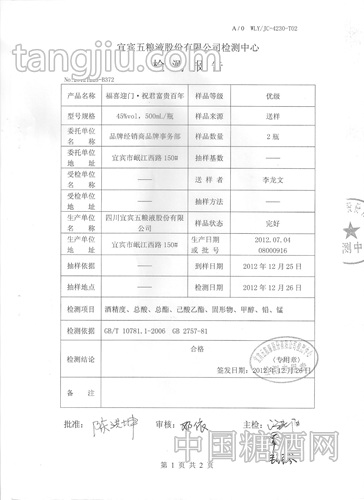 A/0 WLY/JC-4230-T02
宜宾五粮液股份有限公司检测中心
检测报告
产品名称 福喜迎门·祝君富贵百年 样品等级 优级
型号规格 45%vol，500mL/瓶 样品来源 送样
委托单位名称 品牌经销商品牌事务部 样品数量 2瓶
委托单位地址 宜宾市岷江西路150# 抽样基数 ——
受检单位名称 —— 送样者 李龙文
受检单位地址 —— 抽样方法 ——
生产单位名称 四川宜宾五粮液股份有限公司 样品状态 完好
生产单位地址 宜宾市岷江西路150# 生产日期或批号 2012.07.04 08000916
抽样依据 —— 到样日期 2012年12月25日
抽样地点 —— 检测日期 2012年12月26日
检测项目 酒精度、总酸、总酯、己酸乙酯、固形物、甲醇、铅、锰
检测依据 GB/T 10781.1-2006 GB 2757-81
检测结论 合格
（专用章）
签发日期：2012年12月26日
备注
批准： 审核： 主检：
第1页共2页
tangjiu.com
中国糖酒网